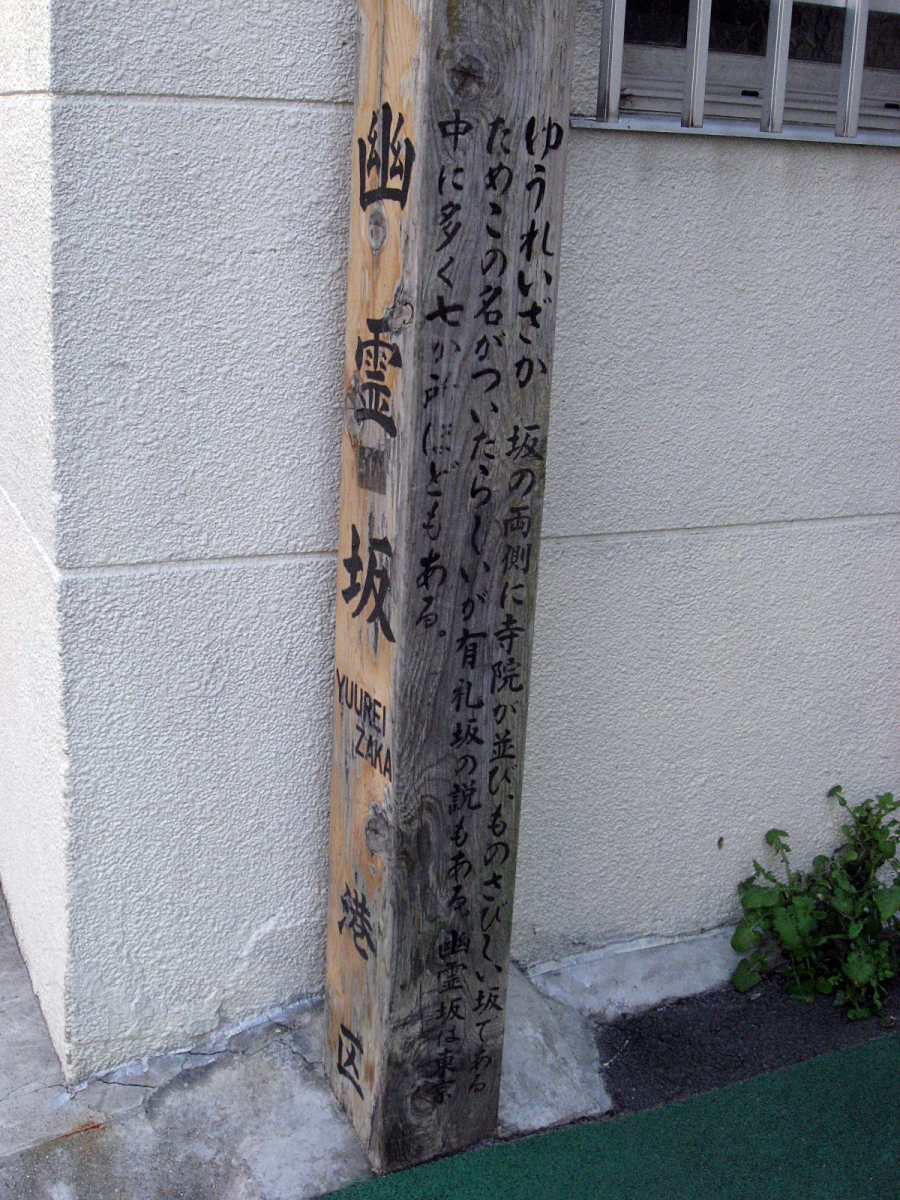 幽霊坂
YUUREI
ZAKA
港区
ゆうれいざか 坂の両側に寺院が並び、ものさびしい坂である
ためこの名がついたらしいが有礼坂の説もある。幽霊坂は東京
中に多く七か所ほどもある。